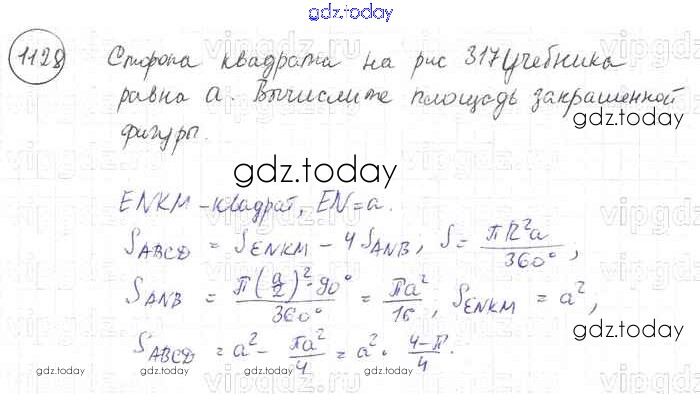 gdz.today
1128 Сторона квадрата на рис 317 учебника
равна a. Вычислите площадь закрашенной
фигуры.
gdz.today
ENKM - квадрат, EN = a.
S_ABCD = S_ENKM - 4 S_ANB, S = πR²α / 360°;
S_ANB = π(a/2)²·90° / 360° = πa²/16; S_ENKM = a²,
gdz.today
S_ABCD = a² - πa²/4 = a² · (4-π)/4.
gdz.today gdz.today gdz.today